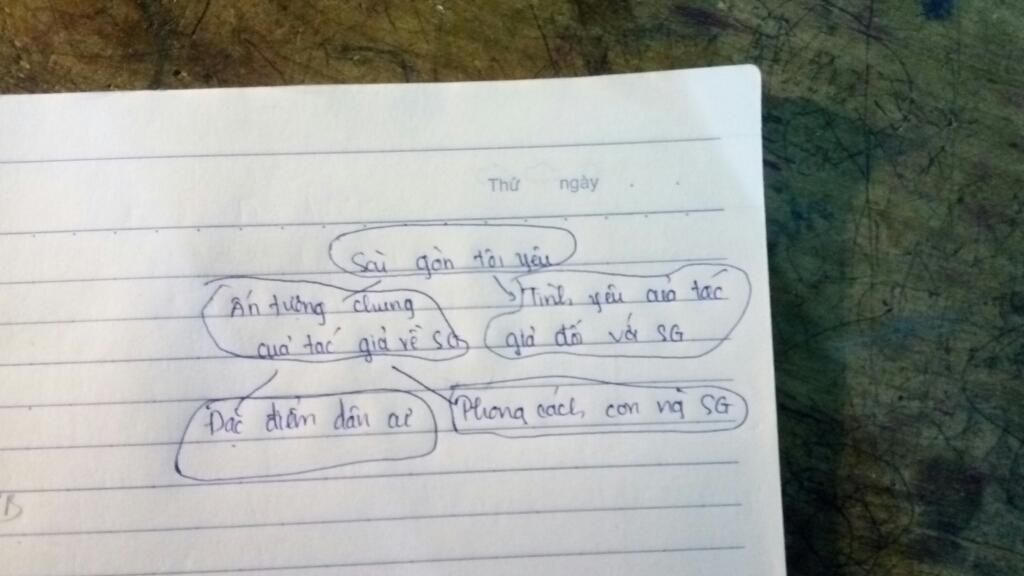 Thứ ngày . .
Sài gòn tôi yêu
Ấn tượng chung
của tác giả về SG
Tình yêu của tác
giả đối với SG
Đặc điểm dân cư
Phong cách con ng SG
B